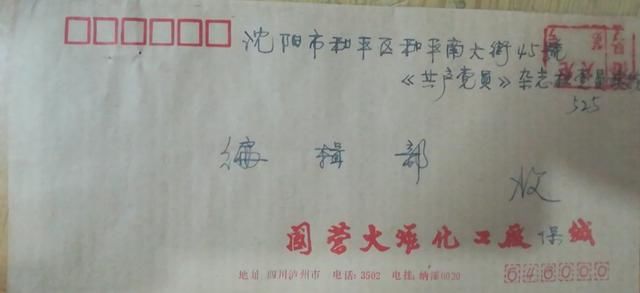 沈阳市和平区和平南大街45號
《共产党员》杂志社
525
编辑部
收
国营火炬化工厂保缄
地址 四川泸州市 电话:3502 电挂:纳溪0020 646000